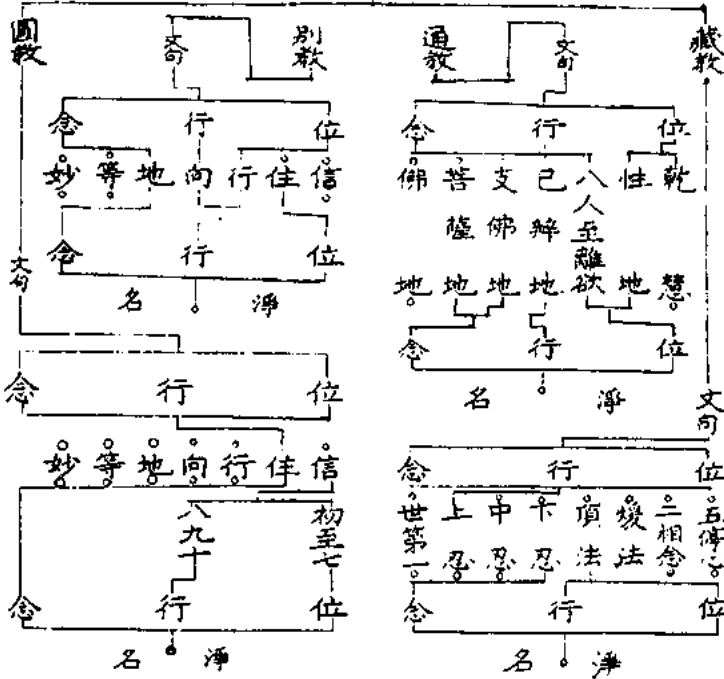 藏教
文句
位 行 念
五停心
二相念
煖法
頂法
下忍
中忍
上忍
世第一
位 行 念
淨名
通教
文句
位 行 念
乾慧
性地
八人至離欲
已辦地
支佛地
菩薩地
佛地
位 行 念
淨名
別教
文句
位 行 念
信 住 行 向 地 等 妙
位 行 念
淨名
圓教
文句
位 行 念
信 住 行 向 地 等 妙
初至七
八九十
位 行 念
淨名